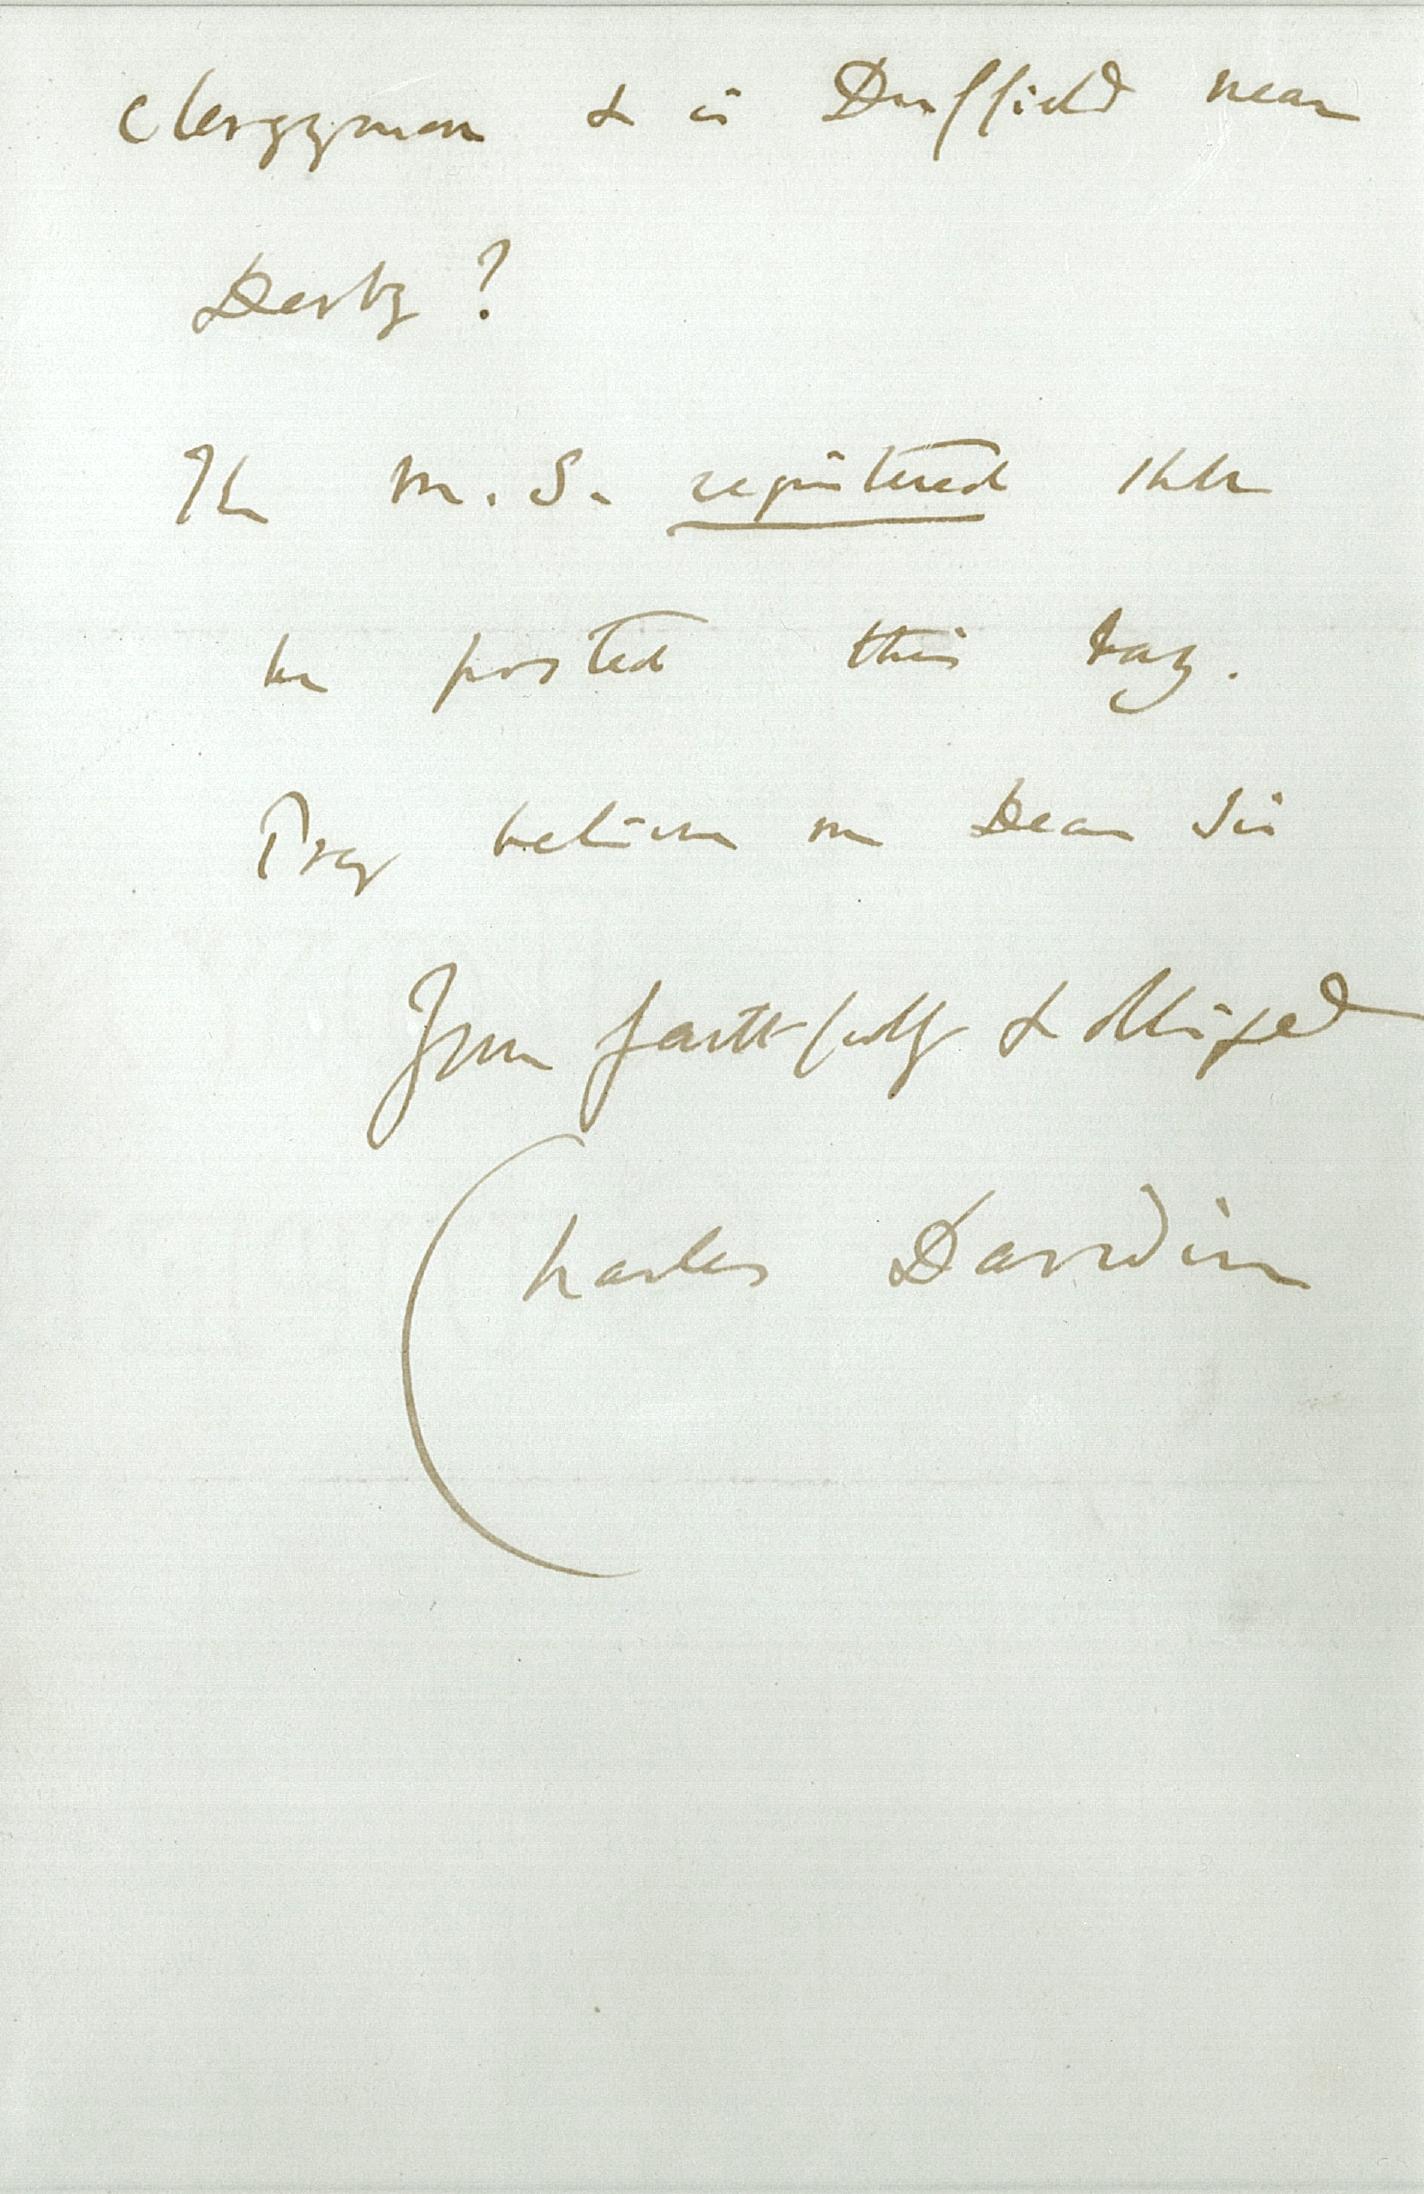 Clergyman & is Duffield near
Derby?
The M.S. registered shall
be posted this day.
Pray believe me Dear Sir
Yours faithfully & obliged
Charles Darwin